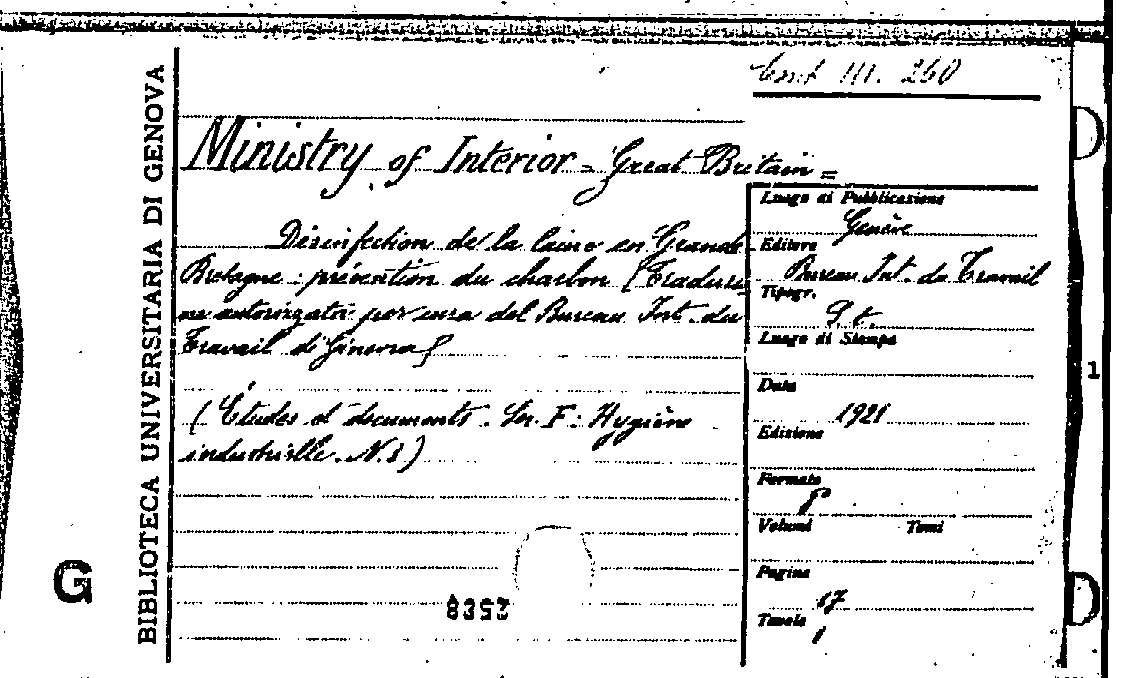 BIBLIOTECA UNIVERSITARIA DI GENOVA
G
Cont III. 260
Ministry of Interior = Great Britain =
Désinfection de la laine en Grande
Bretagne: prévention du charbon (Traduzio
ne autorizzata per cura del Bureau Int. du
Travail di Ginevra)
(Études et documents. Ser. F: Hygiène
industrielle. N.1)
2538
Luogo di Pubblicazione
Genève
Editore
Bureau Int. du Travail
Tipogr.
S. t.
Luogo di Stampa
Data
1921
Edizione
Formato
8°
Volumi Tomi
Pagine
17
Tavole
1
1